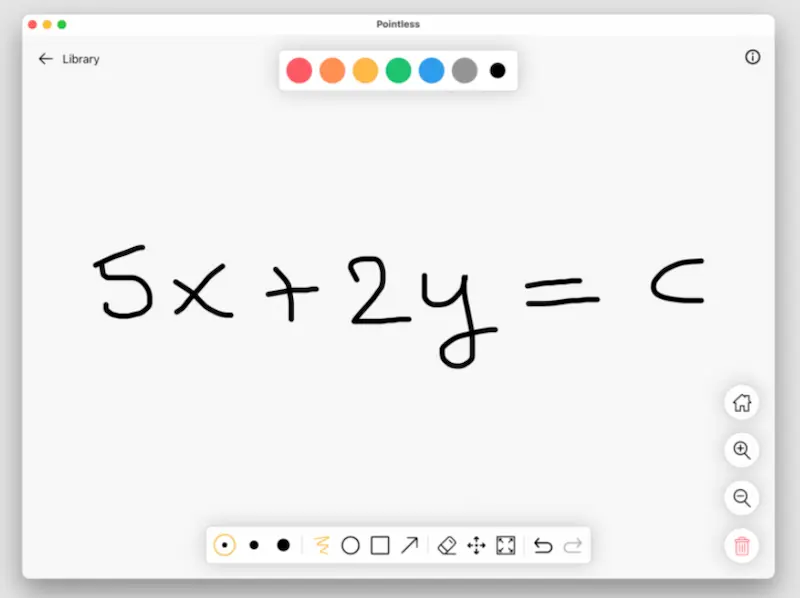 Pointless
Library
5x + 2y = c